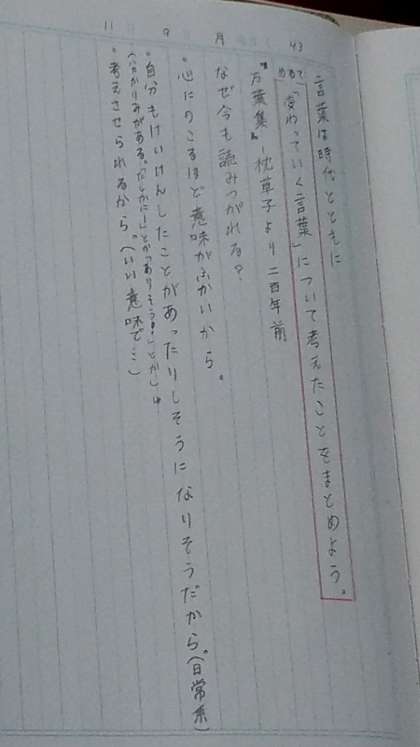 43
言葉は時代とともに
めあて「変わっていく言葉」について考えたことをまとめよう。
『万葉集』―枕草子より二百年前
月
なぜ今も読みつがれる?
・心にのこるほど意味がふかいから。
9
・自分もけいけんしたことがあったりしそうになりそうだから。(日常系)
11
・考えさせられるから。(いい意味で…)